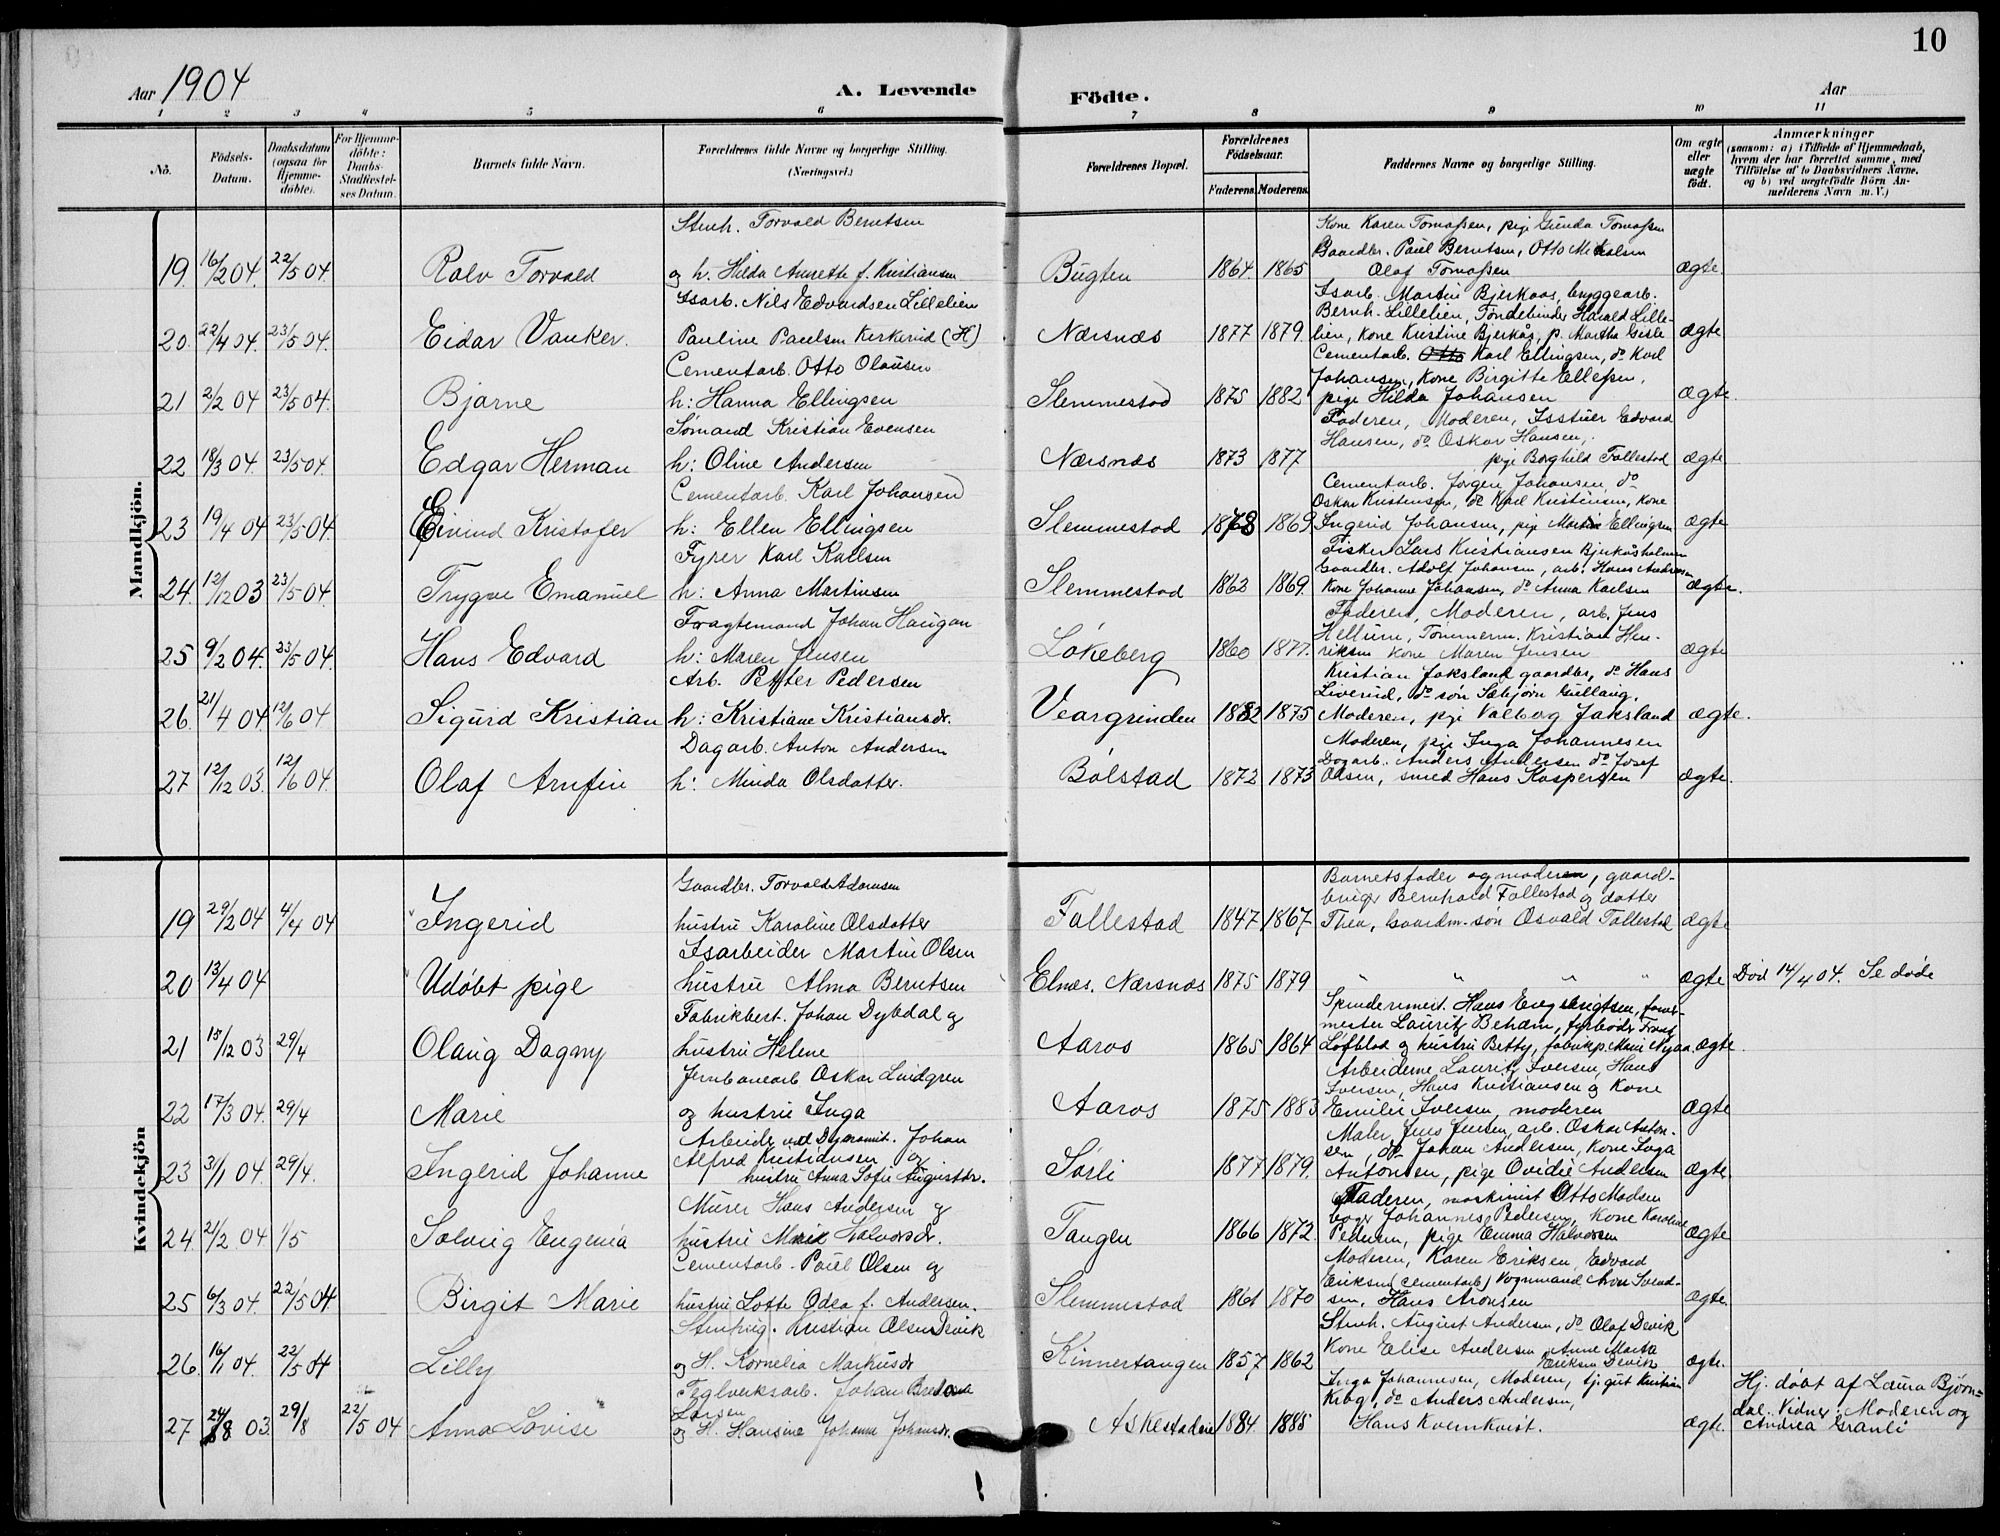 10
Aar 1904
A. Levende Födte.
Aar
1 2 3 4 5 6 7 8 9 10 11
No.
Födsels-Datum.
Daabsdatum (ogsaa for Hjemme-döbte).
For Hjemme-döbte: Daabs Stadfæstel-ses Datum.
Barnets fulde Navn.
Forældrenes fulde Navne og borgerlige Stilling. (Næringsvei.)
Forældrenes Bopæl.
Forældrenes Födselsaar.
Faderens. Moderens.
Faddernes Navne og borgerlige Stilling.
Om ægte eller uægte födt.
Anmærkninger
(saasom: a) i Tilfælde af Hjemmedaab, hvem der har forrettet samme, med Tilföielse af to Daabsvidners Navne, og b) ved uægtefödte Börn An-melderens Navn m. V.)
Mandkjön.
Stenh. Torvald Berntsen
Kone Karen Tomassen, pige Gunda Tomassen
Gaardbr. Paul Berntsen, Otto Mikalsen
19. 16/2 04. 22/5 04. Rolv Torvald og h. Hilda Annette f. Kristiansen Bugten 1864. 1865 Olaf Tomassen ægte.
Isarb. Nils Edvardsen Lillelien
Isarb. Martin Bjerkaas, bryggearb.
Bernh. Lillelien, Tøndebinder Harald Lille-
20. 22/4 04. 23/5 04. Eidar Vanker. Pauline Paulsen Kirkerud (H) Nærsnæs 1877 1879. lien, kone Kristine Bjerkås, p. Martha Gisle ægte
Cementarb. Otto Olausen
Cementarb. Otto Karl Ellingsen, do Karl
Johansen, kone Birgitte Ellefsen,
21 2/2 04 23/5 04. Bjarne h: Hanna Ellingsen Slemmestad 1875 1882 pige Hilda Johansen ægte.
Sømand Kristian Evensen
Faderen, Moderen, Isstuer Edvard
Hansen, do Oskar Hansen,
22 18/3 04. 23/5 04. Edgar Herman h: Oline Andersen Nærsnæs 1873 1877 pige Borghild Follestad ægte
Cementarb. Karl Johansen
Cementarb. Jørgen Johansen, do
Oskar Kristensen, do Karl Kristensen, kone
23 19/4 04 23/5 04. Eivind Kristofer h: Ellen Ellingsen Slemmestad 1878 1869. Ingerid Johansen, pige Martin Ellingsen ægte
Fyrer Karl Karlsen
Fisker Lars Kristiansen Bjerkåsholmen
Gaardbr. Adolf Johansen, arb. Hans Andersen
24. 12/12 03 23/5 04. Trygve Emanuel h: Anna Martinsen Slemmestad 1863 1869. Kone Johanne Johansen, do Anna Karlsen ægte.
Fragtemand Johan Haugan
Faderen, Moderen, arb. Jens
Hellum, Tømmerm. Kristian Hen-
25 9/2 04. 23/5 04. Hans Edvard h: Maren Jensen Løkeberg 1860 1877. riksen kone Maren Jensen ægte
Arb. Petter Pedersen
Kristian Joksland gaardbr, do Hans
Liverud, do søn Sæbjørn Gullaug,
26. 21/4 04. 12/6 04 Sigurd Kristian h: Kristiane Kristiansdr. Veargrinden 1882 1875 Moderen, pige Valborg Jaksland ægte.
Dagarb. Anton Andersen
Moderen, pige Inga Johannesen
Dagarb. Anders Andersen do Josef
27 12/12 03. 12/6 04. Olaf Arnfin h: Minda Olsdatter. Bølstad 1872 1873 Olsen, smed Hans Kaspersen ægte.
Kvindekjön
Gaardbr. Torvald Adamsen
Barnets fader og moderen, gaard-
bruger Bernhard Follestad og datter
19 29/2 04 4/4 04 Ingerid hustru Karoline Olsdatter Follestad 1847 1867. Thea, Gaardm. søn Osvald Follestad ægte
Isarbeider Martin Olsen
20 13/4 04 Udøbt pige hustru Alma Berntsen Elnæs, Nærsnæs 1875 1879 " " " " ægte Død 14/4 04. Se døde
Fabrikbest. Johan Dybdal og
Spindermest. Hans Engebrigtsen, farve-
mester Lauritz Behdm, fyrbøder Frantz
21 15/12 03 29/4 Olaug Dagny hustru Helene Aaros 1865 1864 Løfblad og hustru Betty, fabrikp. Marie Nygaa. ægte.
Jernbanearb Oskar Lindgren
Arbeiderne Lauritz Iversen, Hans
Iversen, Hans Kristiansen og kone
22 17/3 04. 29/4 Marie og hustru Inga Aaros 1875 1883 Emilie Iversen, moderen ægte
Arbeider ved Dynamit. Johan
Alfred Kristiansen og
Maler Jens Jensen, arb. Oskar Anton-
sen, do Johan Andersen, kone Inga
23 3/1 04. 29/4. Ingerid Johanne hustru Anna Sofie Augustdr. Sørli 1877 1879. Antonsen, pige Ovidie Andersen ægte
Murer Hans Andersen og
Faderen, maskinist Otto Madsen
bager Johannes Pedersen, Kone Karoline
24. 21/2 04 1/5 Solveig Eugenia hustru Marie Halvorsdr. Tangen 1866 1872 Pedersen, pige Emma Halvorsen ægte
Cementarb. Paul Olsen og
Moderen, Karen Eriksen, Edvard
Eriksen (cementarb) Vognmand Aron Svend-
25 6/3 04. 22/5 04 Birgit Marie hustru Lotte Odea f. Andersen. Slemmestad 1861 1870 sen, Hans Aronsen ægte.
Stenhug. Kristian Olsen Devik
Stenh. August Andersen, do Olaf Devik
Kone Elise Andersen Anne Marta
26. 16/1 04. 22/5 04 Lilly og H. Kornelia Markusdr Kinnertangen 1857 1862 Eriksen Devik ægte.
Teglverksarb. Johan
Larsen
Inga Johannesen, Moderen, tj. gut Kristian
do Anders Andersen,
27. 24/8 03 29/8 22/5 04 Anna Lovise og H. Hansine Johanne Johansdr. Askestadeie 1884. 1885 Hans Kvernkvist. ægte.
Hj. døbt af Laura Bjørn-
dal. Vidner: Moderen og
Andrea Granli